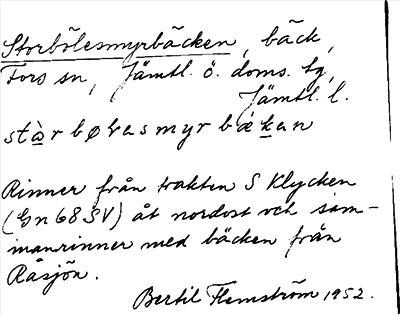 Storbölesmyrbäcken, bäck,
Fors sn, Jämtl. ö. doms. tg,
Jämtl. l.
stàrbølasmyrbäkan
Rinner från trakten S Klycken
(Gn 68 SV) åt nordost och sam-
manrinner med bäcken från
Råsjön.
Bertil Flemström 1952.